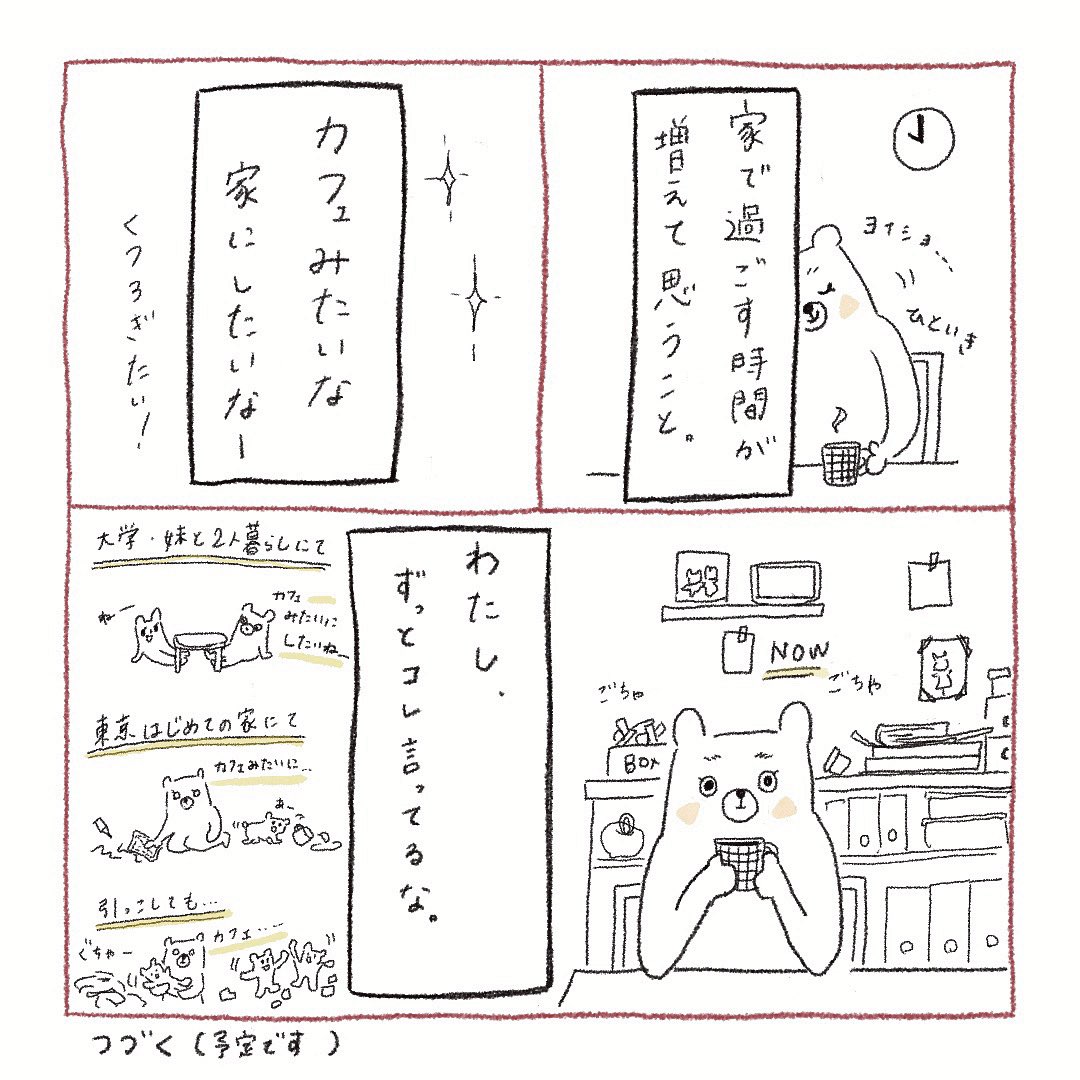 家で過ごす時間が
増えて思うこと。
ヨイショ…
ひといき
カフェみたいな
家にしたいなー
くつろぎたい！
NOW
ごちゃ
ごちゃ
BOX
わたし、
ずっとコレ言ってるな。
大学・妹と2人暮らしにて
ねー
カフェ
みたいに
したいねー
東京はじめての家にて
カフェみたいに…
あー
引っこしても…
ぐちゃー
カフェ…
つづく（予定です）